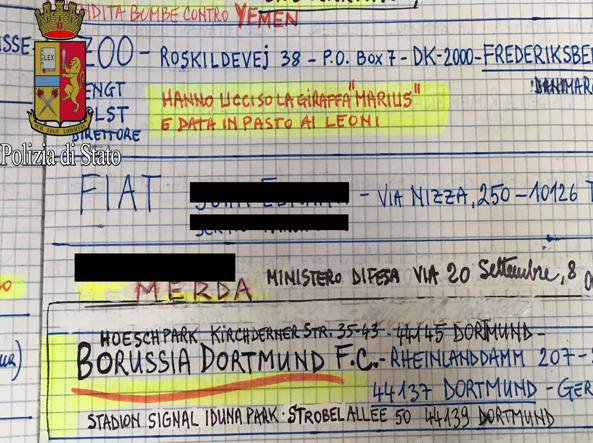 VENDITA BOMBE CONTRO YEMEN
ZOO - ROSKILDEVEJ 38 - P.O. BOX 7 - DK-2000 - FREDERIKSBE
DANIMAR
HANNO UCCISO LA GIRAFFA "MARIUS"
E DATA IN PASTO AI LEONI
ENGT
OLST
DIRETTORE
Polizia di Stato
FIAT - VIA NIZZA, 250 - 10126 T
MERDA MINISTERO DIFESA VIA 20 Settembre, 8
HOESCHPARK KIRCHDERNER STR. 35-43 - 44145 DORTMUND -
BORUSSIA DORTMUND F.C. - RHEINLANDDAMM 207-
44137 DORTMUND - GER
STADION SIGNAL IDUNA PARK - STROBELALLEE 50 44139 DORTMUND